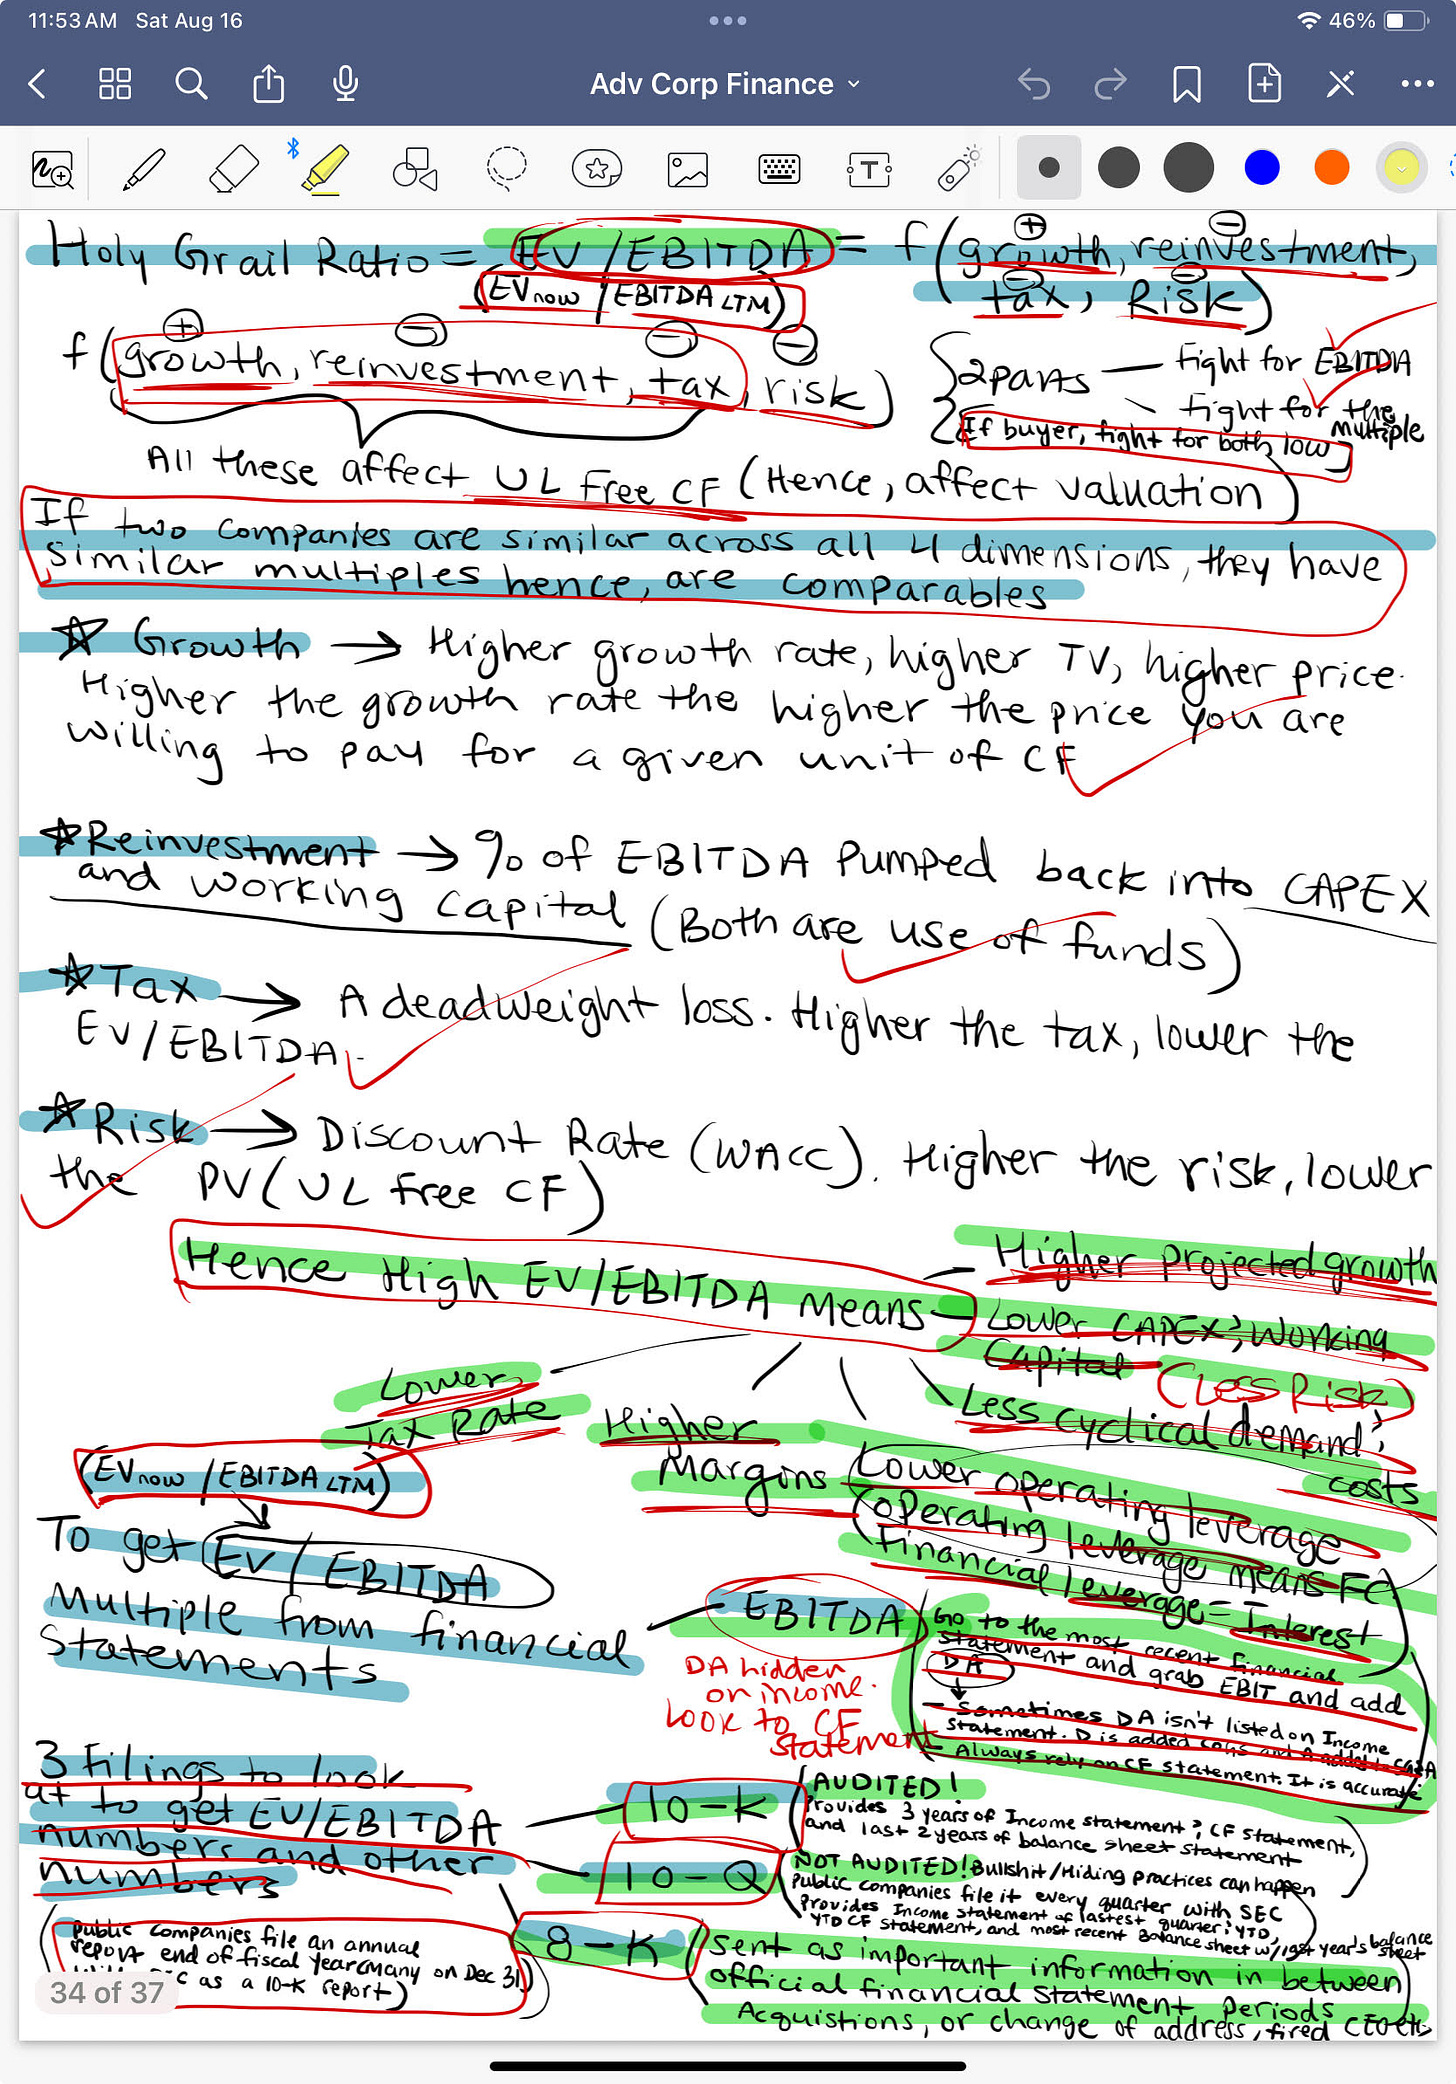 11:53 AM Sat Aug 16
46%
Adv Corp Finance
Holy Grail Ratio = EV/EBITDA = f(growth, reinvestment,
tax, Risk)
(EV now / EBITDA LTM)
f(growth, reinvestment, tax, risk)
2 parts — fight for EBITDA
fight for the
multiple
If buyer, fight for both low
All these affect UL Free CF (Hence, affect valuation)
If two companies are similar across all 4 dimensions, they have
similar multiples hence, are comparables
☆ Growth → Higher growth rate, higher TV, higher price.
Higher the growth rate the higher the price you are
willing to pay for a given unit of CF
☆ Reinvestment → % of EBITDA Pumped back into CAPEX
and working capital (Both are use of funds)
☆ Tax → A deadweight loss. Higher the tax, lower the
EV/EBITDA.
☆ Risk → Discount Rate (WACC). Higher the risk, lower
the PV(UL free CF)
Hence High EV/EBITDA Means
Higher projected growth
Lower CAPEX; Working
Capital (Less Risk)
Less cyclical demand;
costs
Lower
Tax Rate
Higher
Margins
(Lower operating leverage
(operating leverage means FC)
(Financial leverage = Interest
(EV now / EBITDA LTM)
To get EV/EBITDA
Multiple from financial
statements
EBITDA
DA hidden
on income.
Look to CF
statement
Go to the most recent financial
statement and grab EBIT and add
DA
- Sometimes DA isn't listed on Income
statement. D is added COGS and A added to SG&A
- Always rely on CF statement. It is accurate
3 Filings to look
at to get EV/EBITDA
numbers and other
numbers
10-K
(AUDITED!
Provides 3 years of Income statement; CF statement,
and last 2 years of balance sheet statement
10-Q
(NOT AUDITED! Bullshit/Hiding practices can happen
Public companies file it every quarter with SEC
Provides Income statement of lastest quarter; YTD,
YTD CF statement, and most recent Balance sheet w/ last year's balance
sheet
8-K
(sent as important information in between
official financial statement periods
Acquistions, or change of address, fired CEO etc
(Public companies file an annual
report end of fiscal year (Many on Dec 31)
as a 10-K report)
34 of 37